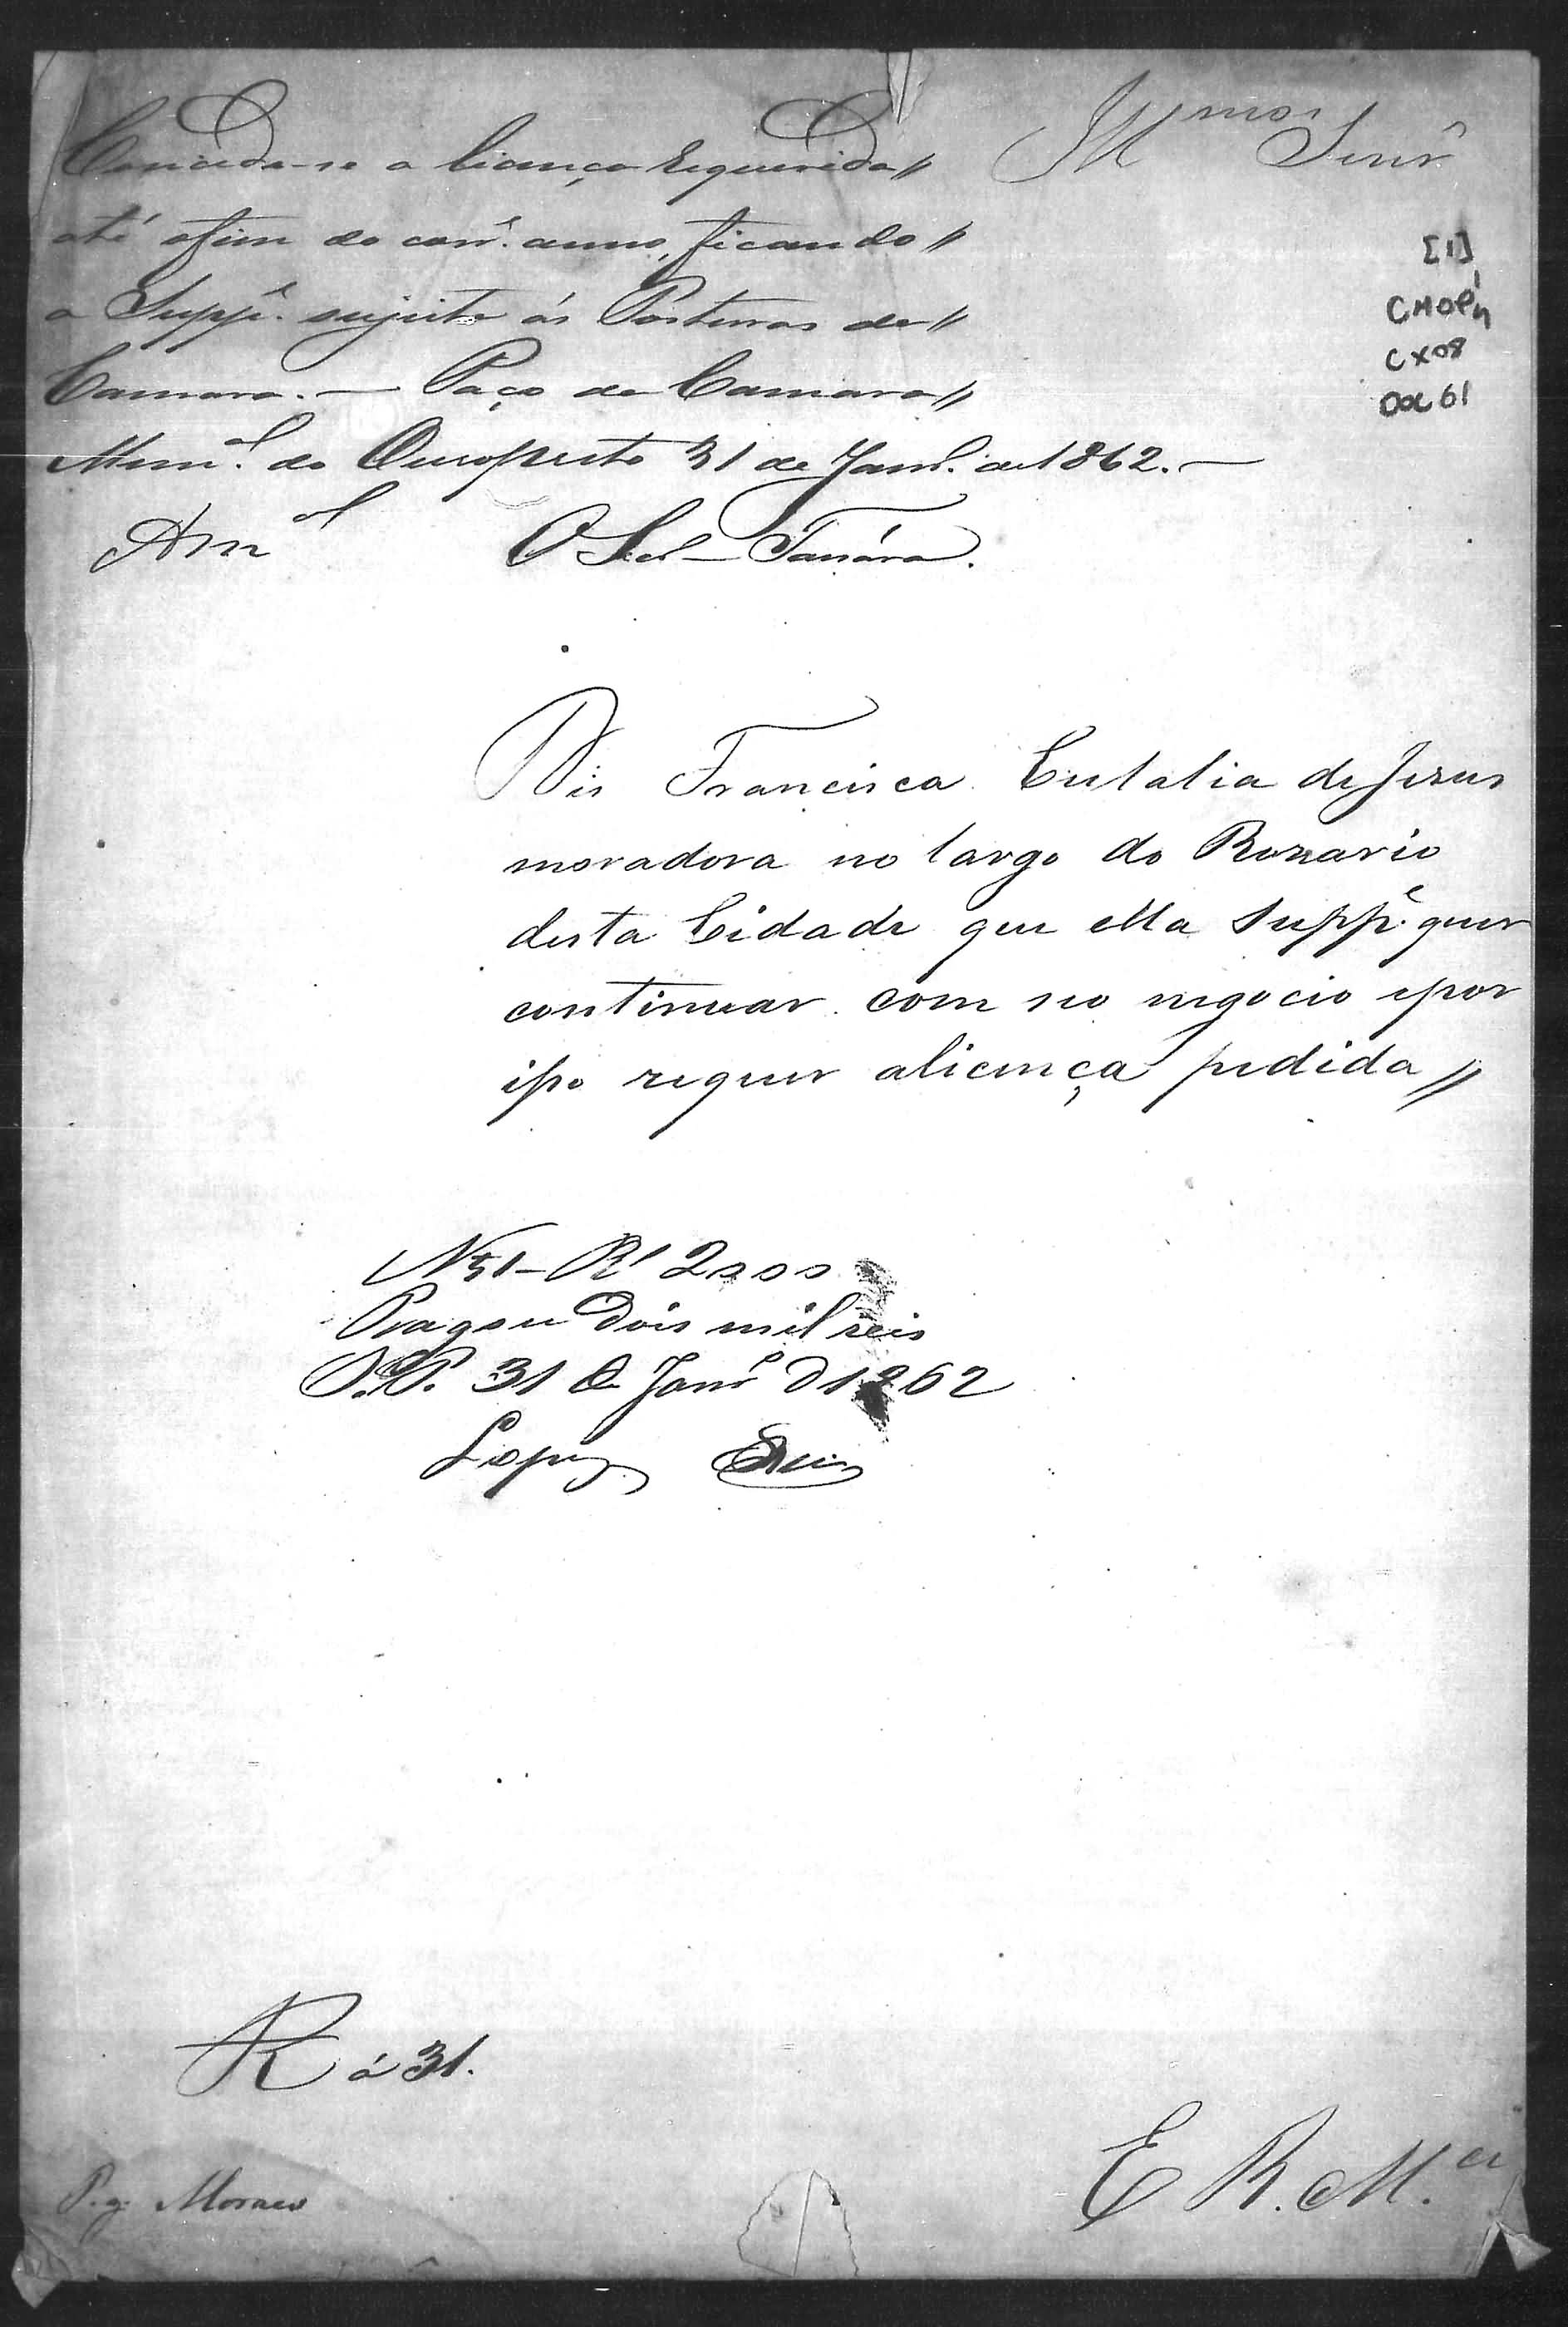 Conceda-se a licença requerida//
Illmos Senr.
até ofim do corr.e anno, ficando//
a Supp.e sugeita ás Posturas da//
Camara. — Paço da Camara//
Mun.al do Ouropreto 31 de Janr.o de 1862. —
O Secr.
[1]
CMOP
CX08
DOC 61
Dis Francisca Eulalia de Jesus
moradora no largo do Rozario
desta Cidade que ella Supp.e quer
continuar com seo negocio epor
isso requer alicença pedida //
N 51 – R.s 2000
Pagou dois mil reis
O.P. 31 de Janr.o d 1862
Lopes
R a 31.
P.g. Moraes
E R. M.ce